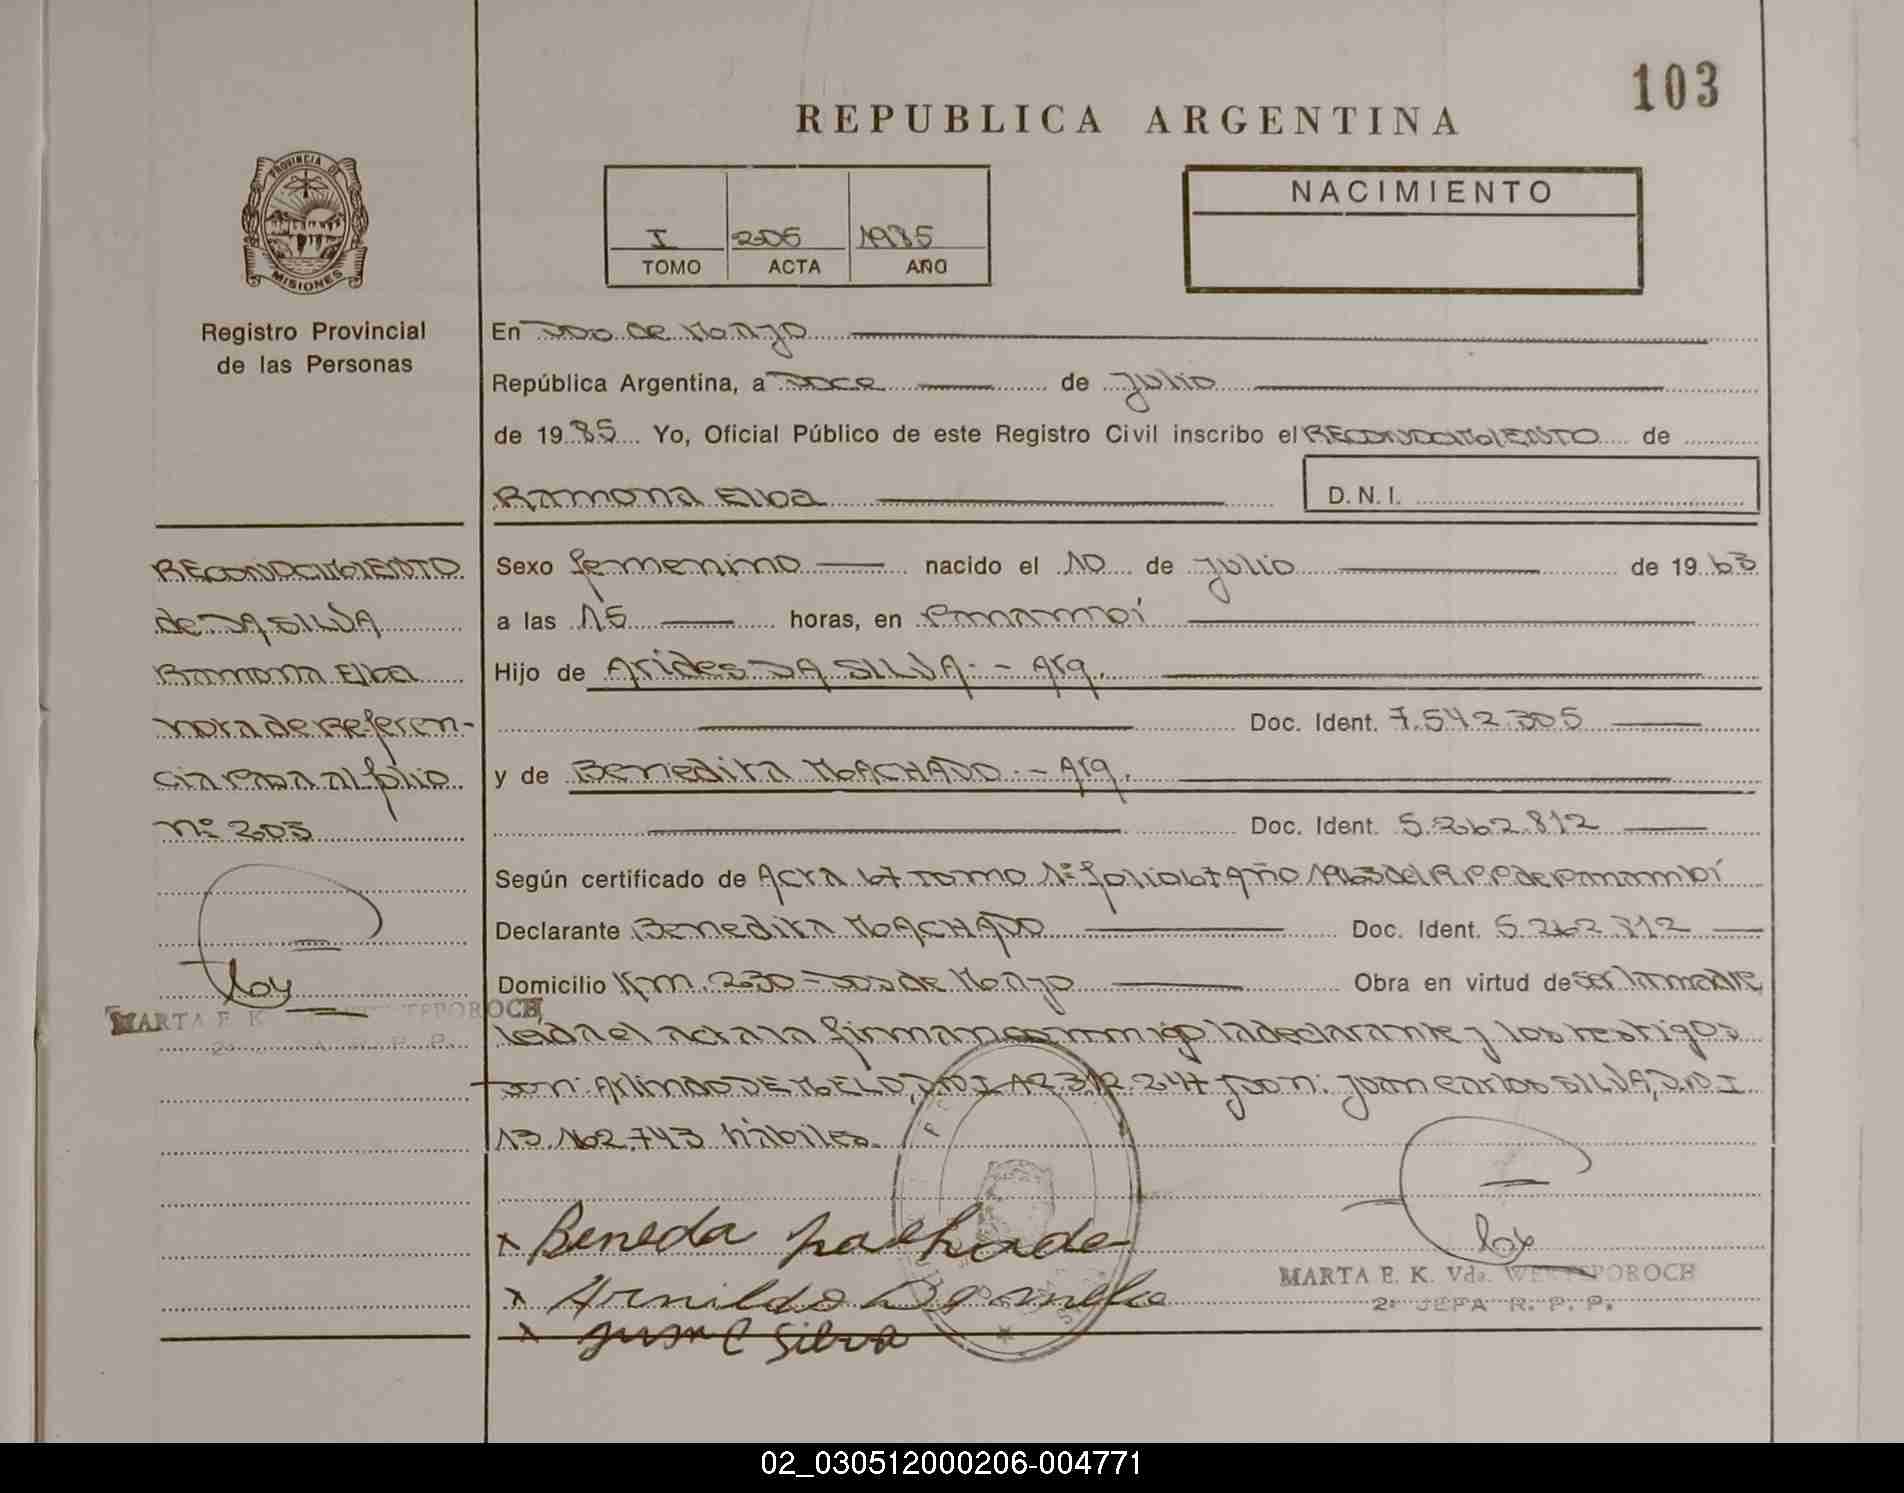 103
REPUBLICA ARGENTINA
PROVINCIA DE
MISIONES
Registro Provincial
de las Personas
I 205 1985
TOMO ACTA AÑO
NACIMIENTO
En Dos de Mayo
República Argentina, a Doce de Julio
de 1985 Yo, Oficial Público de este Registro Civil inscribo el RECONOCIMIENTO de
Ramona Elba D.N.I.
RECONOCIMIENTO
de DA SILVA
Ramona Elba
nota de Referen-
cia pasa al folio
nº 203
MARTA E. K.
Sexo femenino nacido el 10 de Julio de 1963
a las 15 horas, en Panambí
Hijo de Arides DA SILVA.- Arg.
Doc. Ident. 7.542.305
y de Benedita MACHADO.- Arg.
Doc. Ident. 5.262.812
Según certificado de Acta 67 Tomo 1º folio 67 Año 1963 del R.P.P de Panambí
Declarante Benedita MACHADO Doc. Ident. 5.262.812
Domicilio Km. 230 - Dos de Mayo Obra en virtud de ser la madre,
leída el acta la firman conmigo la declarante y los testigos
Don: Arlindo DE MELO, D.N.I 12.312.247 y Don: Juan Carlos SILVA, D.N.I
13.162.743 hábiles.
x Beneda
x Arnildo De mello
x Juan C Silva
MARTA E. K. Vda. WENTEPOROCH
2º JEFA R. P. P.
02_030512000206-004771